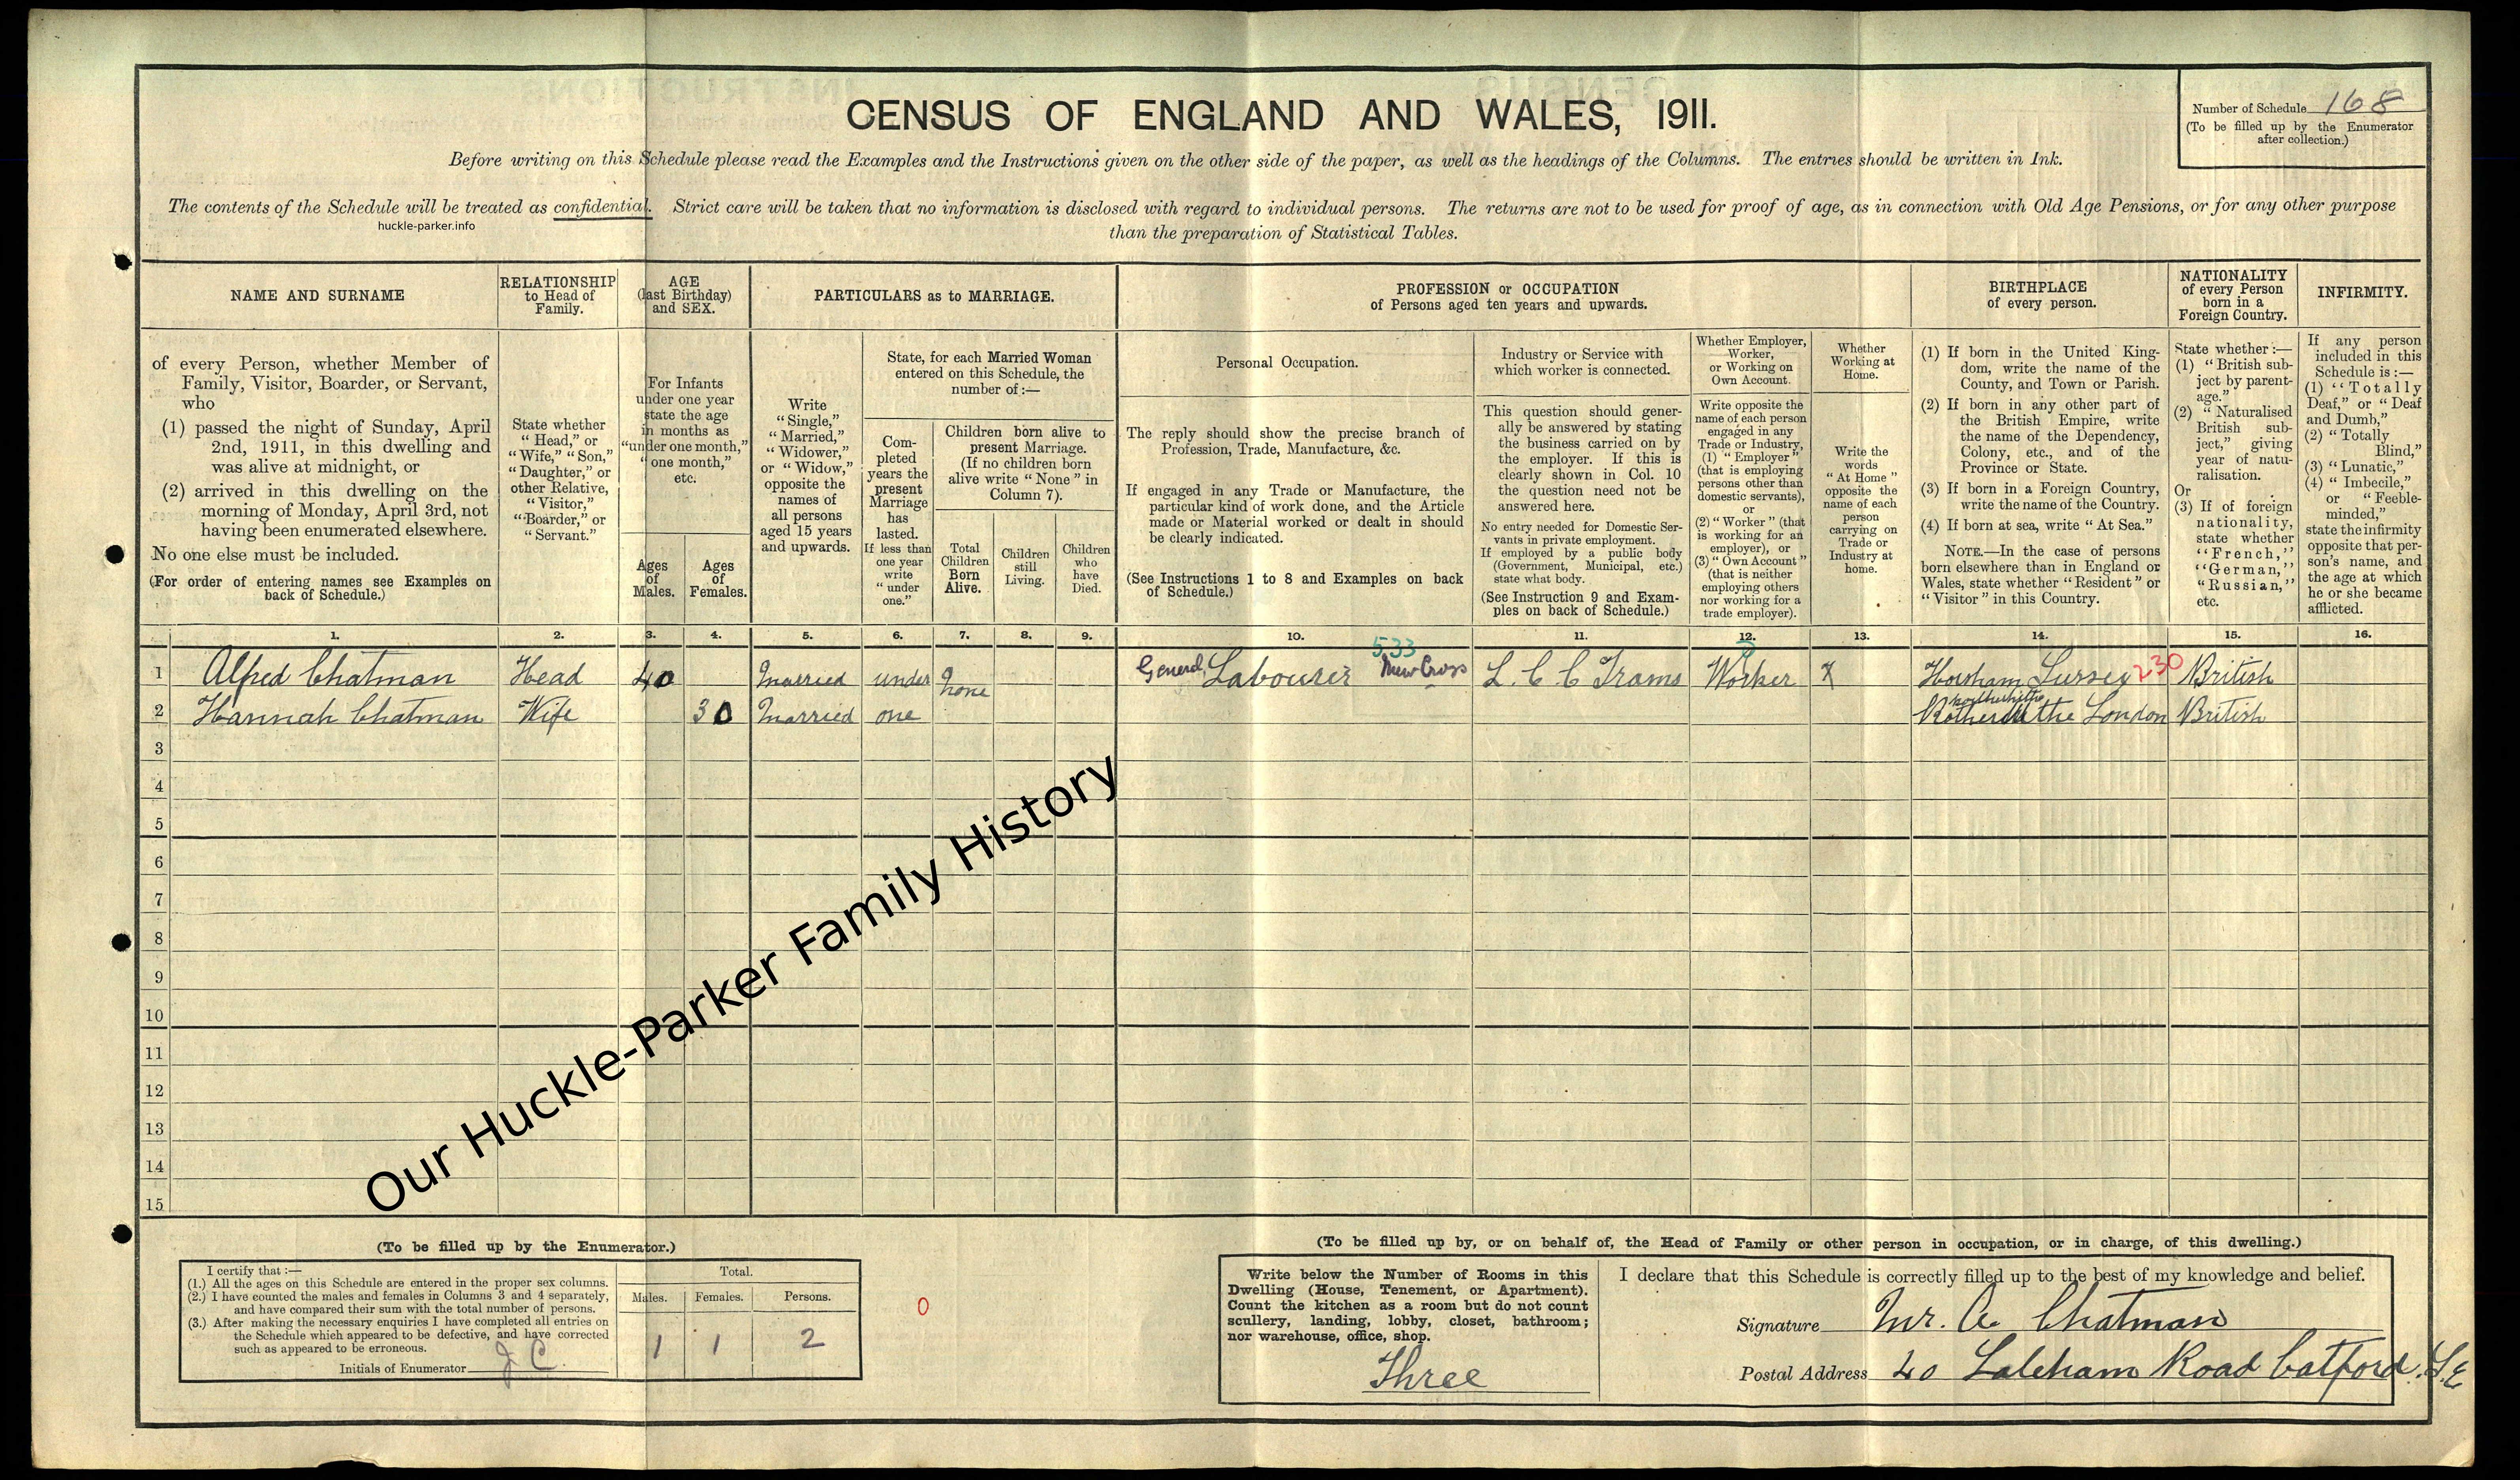 CENSUS OF ENGLAND AND WALES, 1911.
Number of Schedule 168
(To be filled up by the Enumerator
after collection.)
Before writing on this Schedule please read the Examples and the Instructions given on the other side of the paper, as well as the headings of the Columns. The entries should be written in Ink.
The contents of the Schedule will be treated as confidential. Strict care will be taken that no information is disclosed with regard to individual persons. The returns are not to be used for proof of age, as in connection with Old Age Pensions, or for any other purpose
than the preparation of Statistical Tables.
huckle-parker.info
NAME AND SURNAME
of every Person, whether Member of
Family, Visitor, Boarder, or Servant,
who
(1) passed the night of Sunday, April
2nd, 1911, in this dwelling and
was alive at midnight, or
(2) arrived in this dwelling on the
morning of Monday, April 3rd, not
having been enumerated elsewhere.
No one else must be included.
(For order of entering names see Examples on
back of Schedule.)
RELATIONSHIP
to Head of
Family.
State whether
"Head," or
"Wife," "Son,"
"Daughter," or
other Relative,
"Visitor,"
"Boarder," or
"Servant."
AGE
(last Birthday)
and SEX.
For Infants
under one year
state the age
in months as
"under one month,"
"one month,"
etc.
Ages
of
Males.
Ages
of
Females.
PARTICULARS as to MARRIAGE.
Write
"Single,"
"Married,"
"Widower,"
or "Widow,"
opposite the
names of
all persons
aged 15 years
and upwards.
State, for each Married Woman
entered on this Schedule, the
number of :—
Com-
pleted
years the
present
Marriage
has
lasted.
If less than
one year
write
"under
one."
Children born alive to
present Marriage.
(If no children born
alive write "None" in
Column 7).
Total
Children
Born
Alive.
Children
still
Living.
Children
who
have
Died.
PROFESSION or OCCUPATION
of Persons aged ten years and upwards.
Personal Occupation.
The reply should show the precise branch of
Profession, Trade, Manufacture, &c.
If engaged in any Trade or Manufacture, the
particular kind of work done, and the Article
made or Material worked or dealt in should
be clearly indicated.
(See Instructions 1 to 8 and Examples on back
of Schedule.)
Industry or Service with
which worker is connected.
This question should gener-
ally be answered by stating
the business carried on by
the employer. If this is
clearly shown in Col. 10
the question need not be
answered here.
No entry needed for Domestic Ser-
vants in private employment.
If employed by a public body
(Government, Municipal, etc.)
state what body.
(See Instruction 9 and Exam-
ples on back of Schedule.)
Whether Employer,
Worker,
or Working on
Own Account.
Write opposite the
name of each person
engaged in any
Trade or Industry,
(1) "Employer"
(that is employing
persons other than
domestic servants),
or
(2) "Worker" (that
is working for an
employer), or
(3) "Own Account"
(that is neither
employing others
nor working for a
trade employer).
Whether
Working at
Home.
Write the
words
"At Home"
opposite the
name of each
person
carrying on
Trade or
Industry at
home.
BIRTHPLACE
of every person.
(1) If born in the United King-
dom, write the name of the
County, and Town or Parish.
(2) If born in any other part of
the British Empire, write
the name of the Dependency,
Colony, etc., and of the
Province or State.
(3) If born in a Foreign Country,
write the name of the Country.
(4) If born at sea, write "At Sea."
NOTE.—In the case of persons
born elsewhere than in England or
Wales, state whether "Resident" or
"Visitor" in this Country.
NATIONALITY
of every Person
born in a
Foreign Country.
State whether :—
(1) "British sub-
ject by parent-
age."
(2) "Naturalised
British sub-
ject," giving
year of natu-
ralisation.
Or
(3) If of foreign
nationality,
state whether
"French,"
"German,"
"Russian,"
etc.
INFIRMITY.
If any person
included in this
Schedule is :—
(1) "Totally
Deaf," or "Deaf
and Dumb,"
(2) "Totally
Blind,"
(3) "Lunatic,"
(4) "Imbecile,"
or "Feeble-
minded,"
state the infirmity
opposite that per-
son's name, and
the age at which
he or she became
afflicted.
1. 2. 3. 4. 5. 6. 7. 8. 9. 10. 11. 12. 13. 14. 15. 16.
533
1 Alfred Chatman Head 40 Married under None General Labourer New Cross L. C C Trams Worker X Horsham Sussex 230 British
2 Hannah Chatman Wife 30 Married one Rotherhithe London British
3
4
5
6
7
8
9
10
11
12
13
14
15
Our Huckle-Parker Family History
(To be filled up by the Enumerator.)
I certify that :—
(1.) All the ages on this Schedule are entered in the proper sex columns.
(2.) I have counted the males and females in Columns 3 and 4 separately,
and have compared their sum with the total number of persons.
(3.) After making the necessary enquiries I have completed all entries on
the Schedule which appeared to be defective, and have corrected
such as appeared to be erroneous.
Initials of Enumerator J C.
Total.
Males. Females. Persons.
1 1 2
0
(To be filled up by, or on behalf of, the Head of Family or other person in occupation, or in charge, of this dwelling.)
Write below the Number of Rooms in this
Dwelling (House, Tenement, or Apartment).
Count the kitchen as a room but do not count
scullery, landing, lobby, closet, bathroom;
nor warehouse, office, shop.
Three
I declare that this Schedule is correctly filled up to the best of my knowledge and belief.
Signature Mr. A. Chatman
Postal Address 40 Laleham Road Catford. S.E